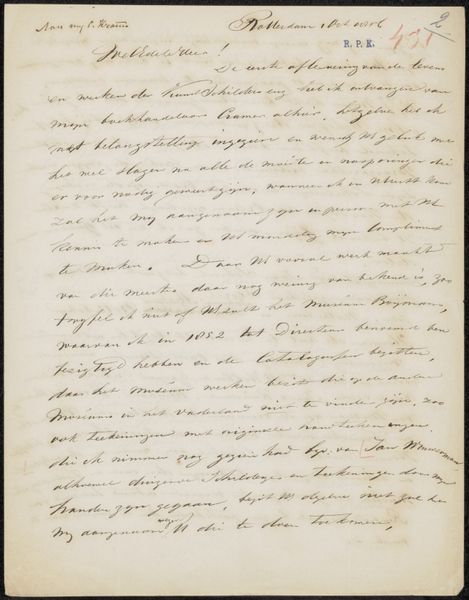 Aan my C. Kramm
Rotterdam 1 Oct
2
R. P. K.
431
WelEdele Heer!
De eerste aflevering van de levens
en werken der Kunst Schilders enz heb ik ontvangen van
mijn boekhandelaar Cramer alhier, hetzelve heb ik
met belangstelling ingezien en wensch U geluk met
het wel slagen na alle de moeite en nasporingen die
er voor nodig geweest zijn, wanneer ik in Utrecht kom
zal het my aangenaam zyn in persoon met U
kennis te maken en UE mondeling mijn compliment
te maken. Daar U vooral werk maakt
van die meesters daar nog weinig van bekend is, zoo
twyfel ik niet of U zult het Muséum Boijmans,
waarvan ik in 1852 tot Directeur benoemd ben
bezigtigd hebben en de Catalogussen bezitten,
daar het Muséum werken bezit die op de andere
Muséums in het vaderland niet te vinden zyn, zoo
ook teekeningen met originele naamteekeningen
die ik nimmer nog gezien had bijv. van Jan Wouwerman
alhoewel duizende Schilderyen en teekeningen door myn
handen zyn gegaan, bezit U dezelve niet zoo zal
my aangenaam wezen U die te doen toekomen,